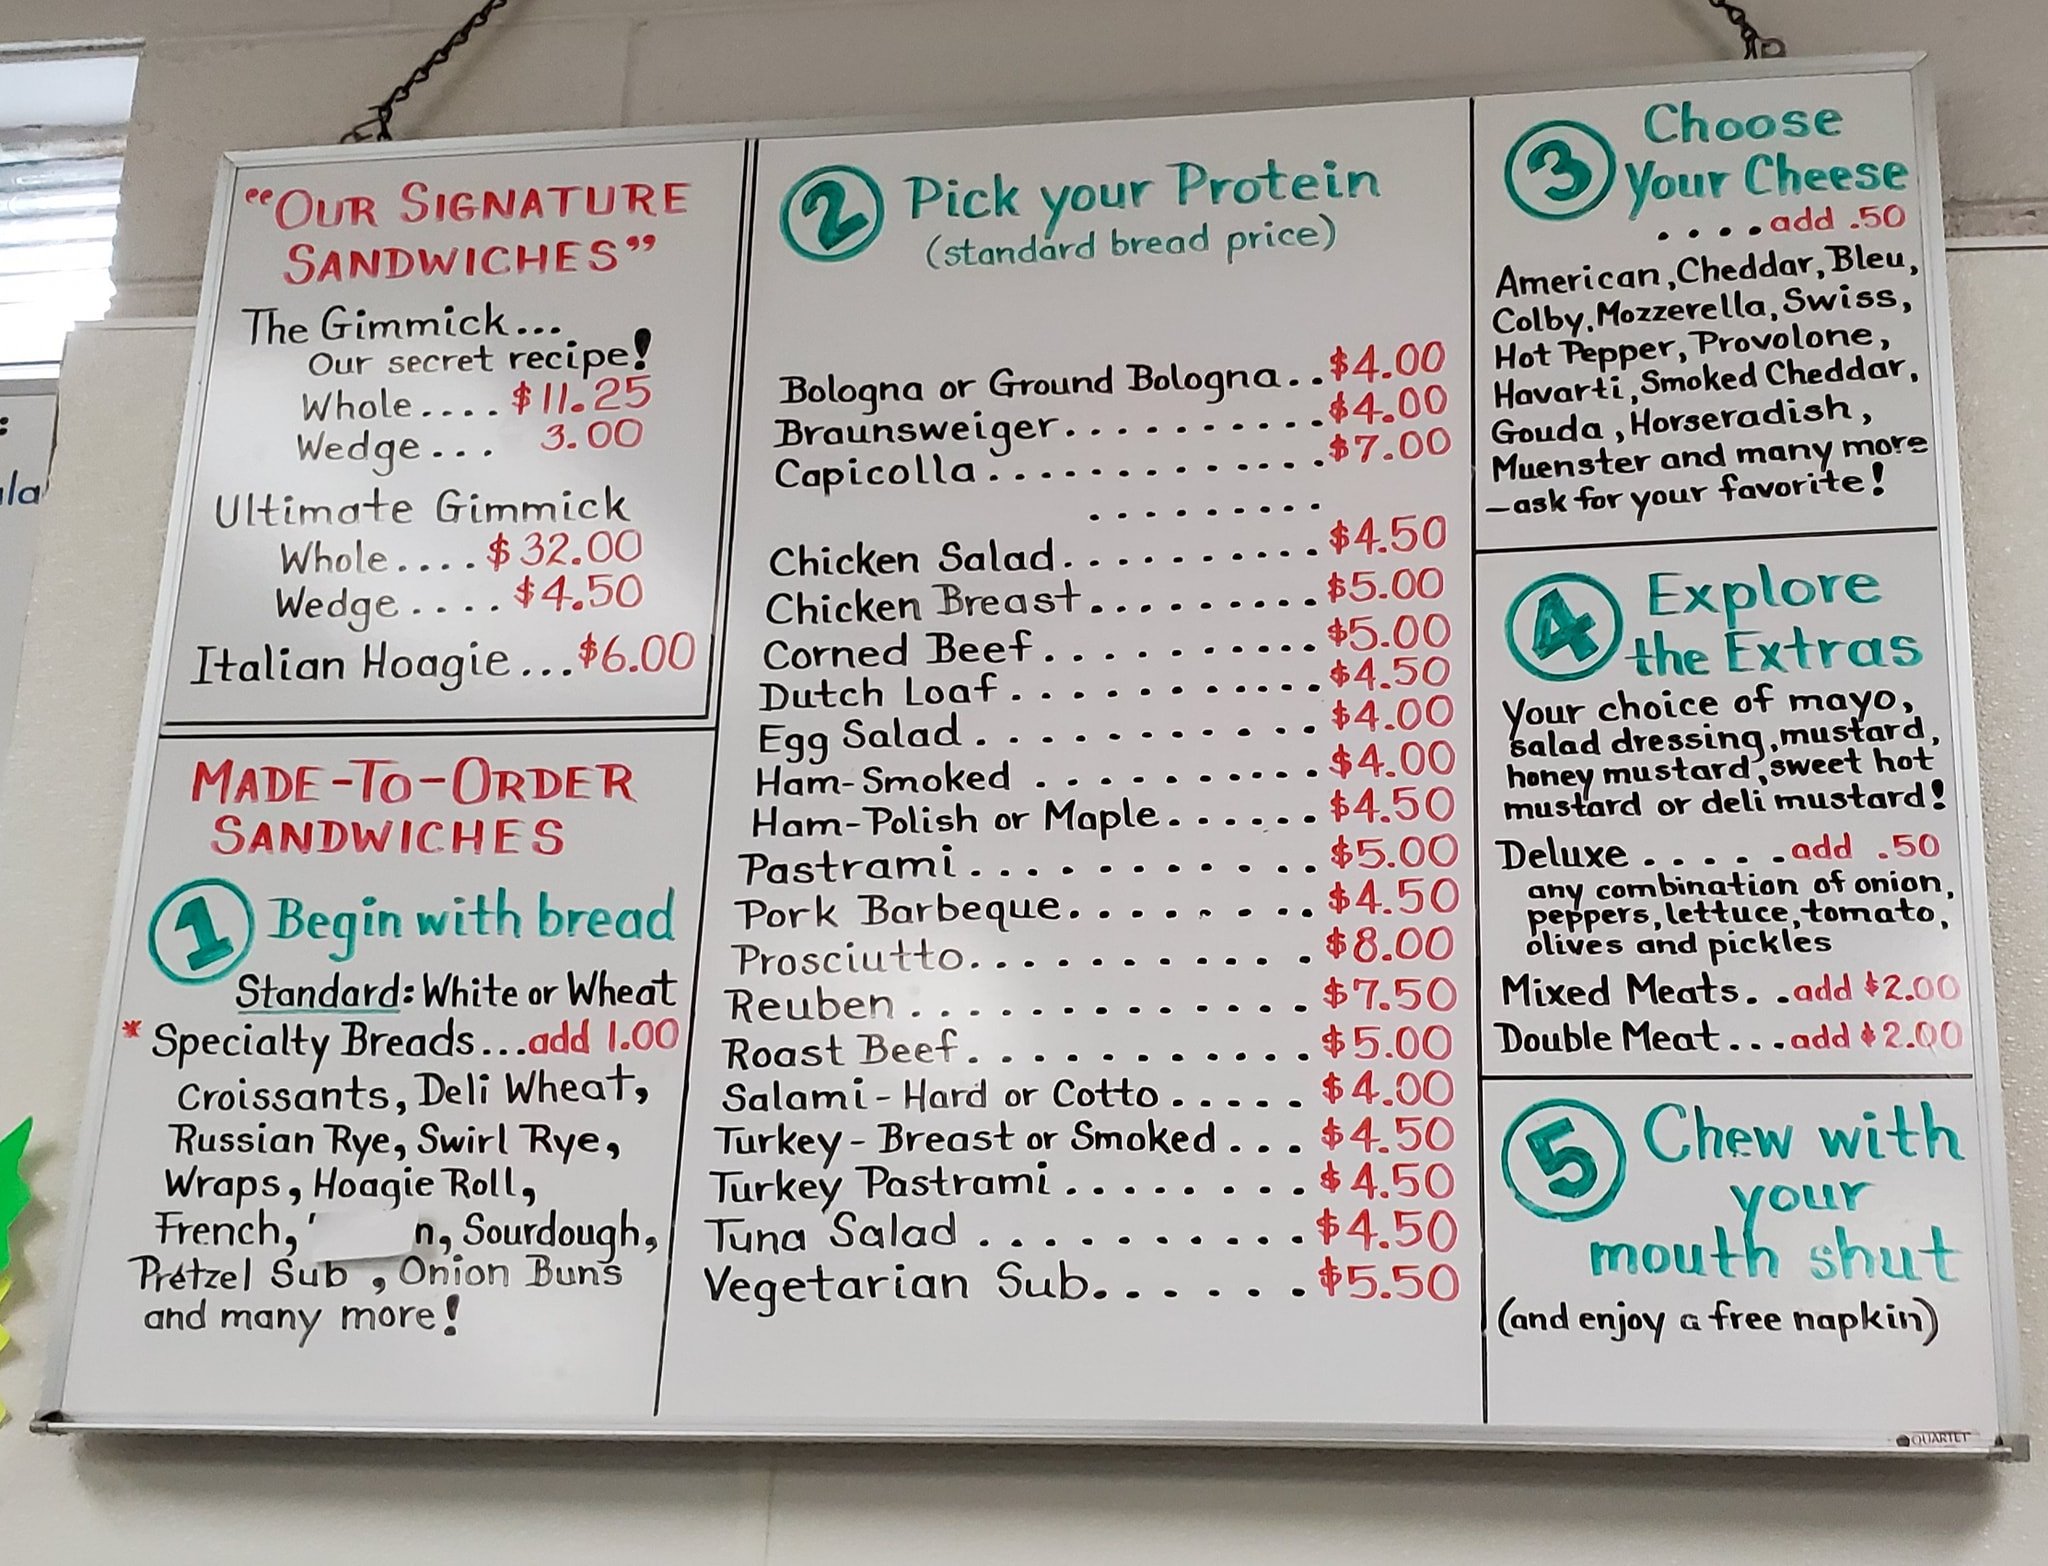 "OUR SIGNATURE
SANDWICHES"
The Gimmick...
Our secret recipe!
Whole.... $11.25
Wedge... 3.00
Ultimate Gimmick
Whole.... $32.00
Wedge.... $4.50
Italian Hoagie...$6.00
MADE-TO-ORDER
SANDWICHES
1 Begin with bread
Standard: White or Wheat
* Specialty Breads...add 1.00
Croissants, Deli Wheat,
Russian Rye, Swirl Rye,
Wraps, Hoagie Roll,
French, n, Sourdough,
Pretzel Sub, Onion Buns
and many more!
2 Pick your Protein
(standard bread price)
Bologna or Ground Bologna..$4.00
Braunsweiger..........$4.00
Capicolla.............$7.00
.........
Chicken Salad..........$4.50
Chicken Breast.........$5.00
Corned Beef..........$5.00
Dutch Loaf...........$4.50
Egg Salad...........$4.00
Ham-Smoked..........$4.00
Ham-Polish or Maple......$4.50
Pastrami............$5.00
Pork Barbeque........$4.50
Prosciutto............$8.00
Reuben.............$7.50
Roast Beef...........$5.00
Salami-Hard or Cotto.....$4.00
Turkey-Breast or Smoked...$4.50
Turkey Pastrami........$4.50
Tuna Salad..........$4.50
Vegetarian Sub......$5.50
3 Choose
Your Cheese
....add .50
American, Cheddar, Bleu,
Colby, Mozzerella, Swiss,
Hot Pepper, Provolone,
Havarti, Smoked Cheddar,
Gouda, Horseradish,
Muenster and many more
-ask for your favorite!
4 Explore
the Extras
Your choice of mayo,
salad dressing, mustard,
honey mustard, sweet hot
mustard or deli mustard!
Deluxe.....add .50
any combination of onion,
peppers, lettuce, tomato,
olives and pickles
Mixed Meats..add $2.00
Double Meat...add $2.00
5 Chew with
your
mouth shut
(and enjoy a free napkin)
QUARTET
:
la